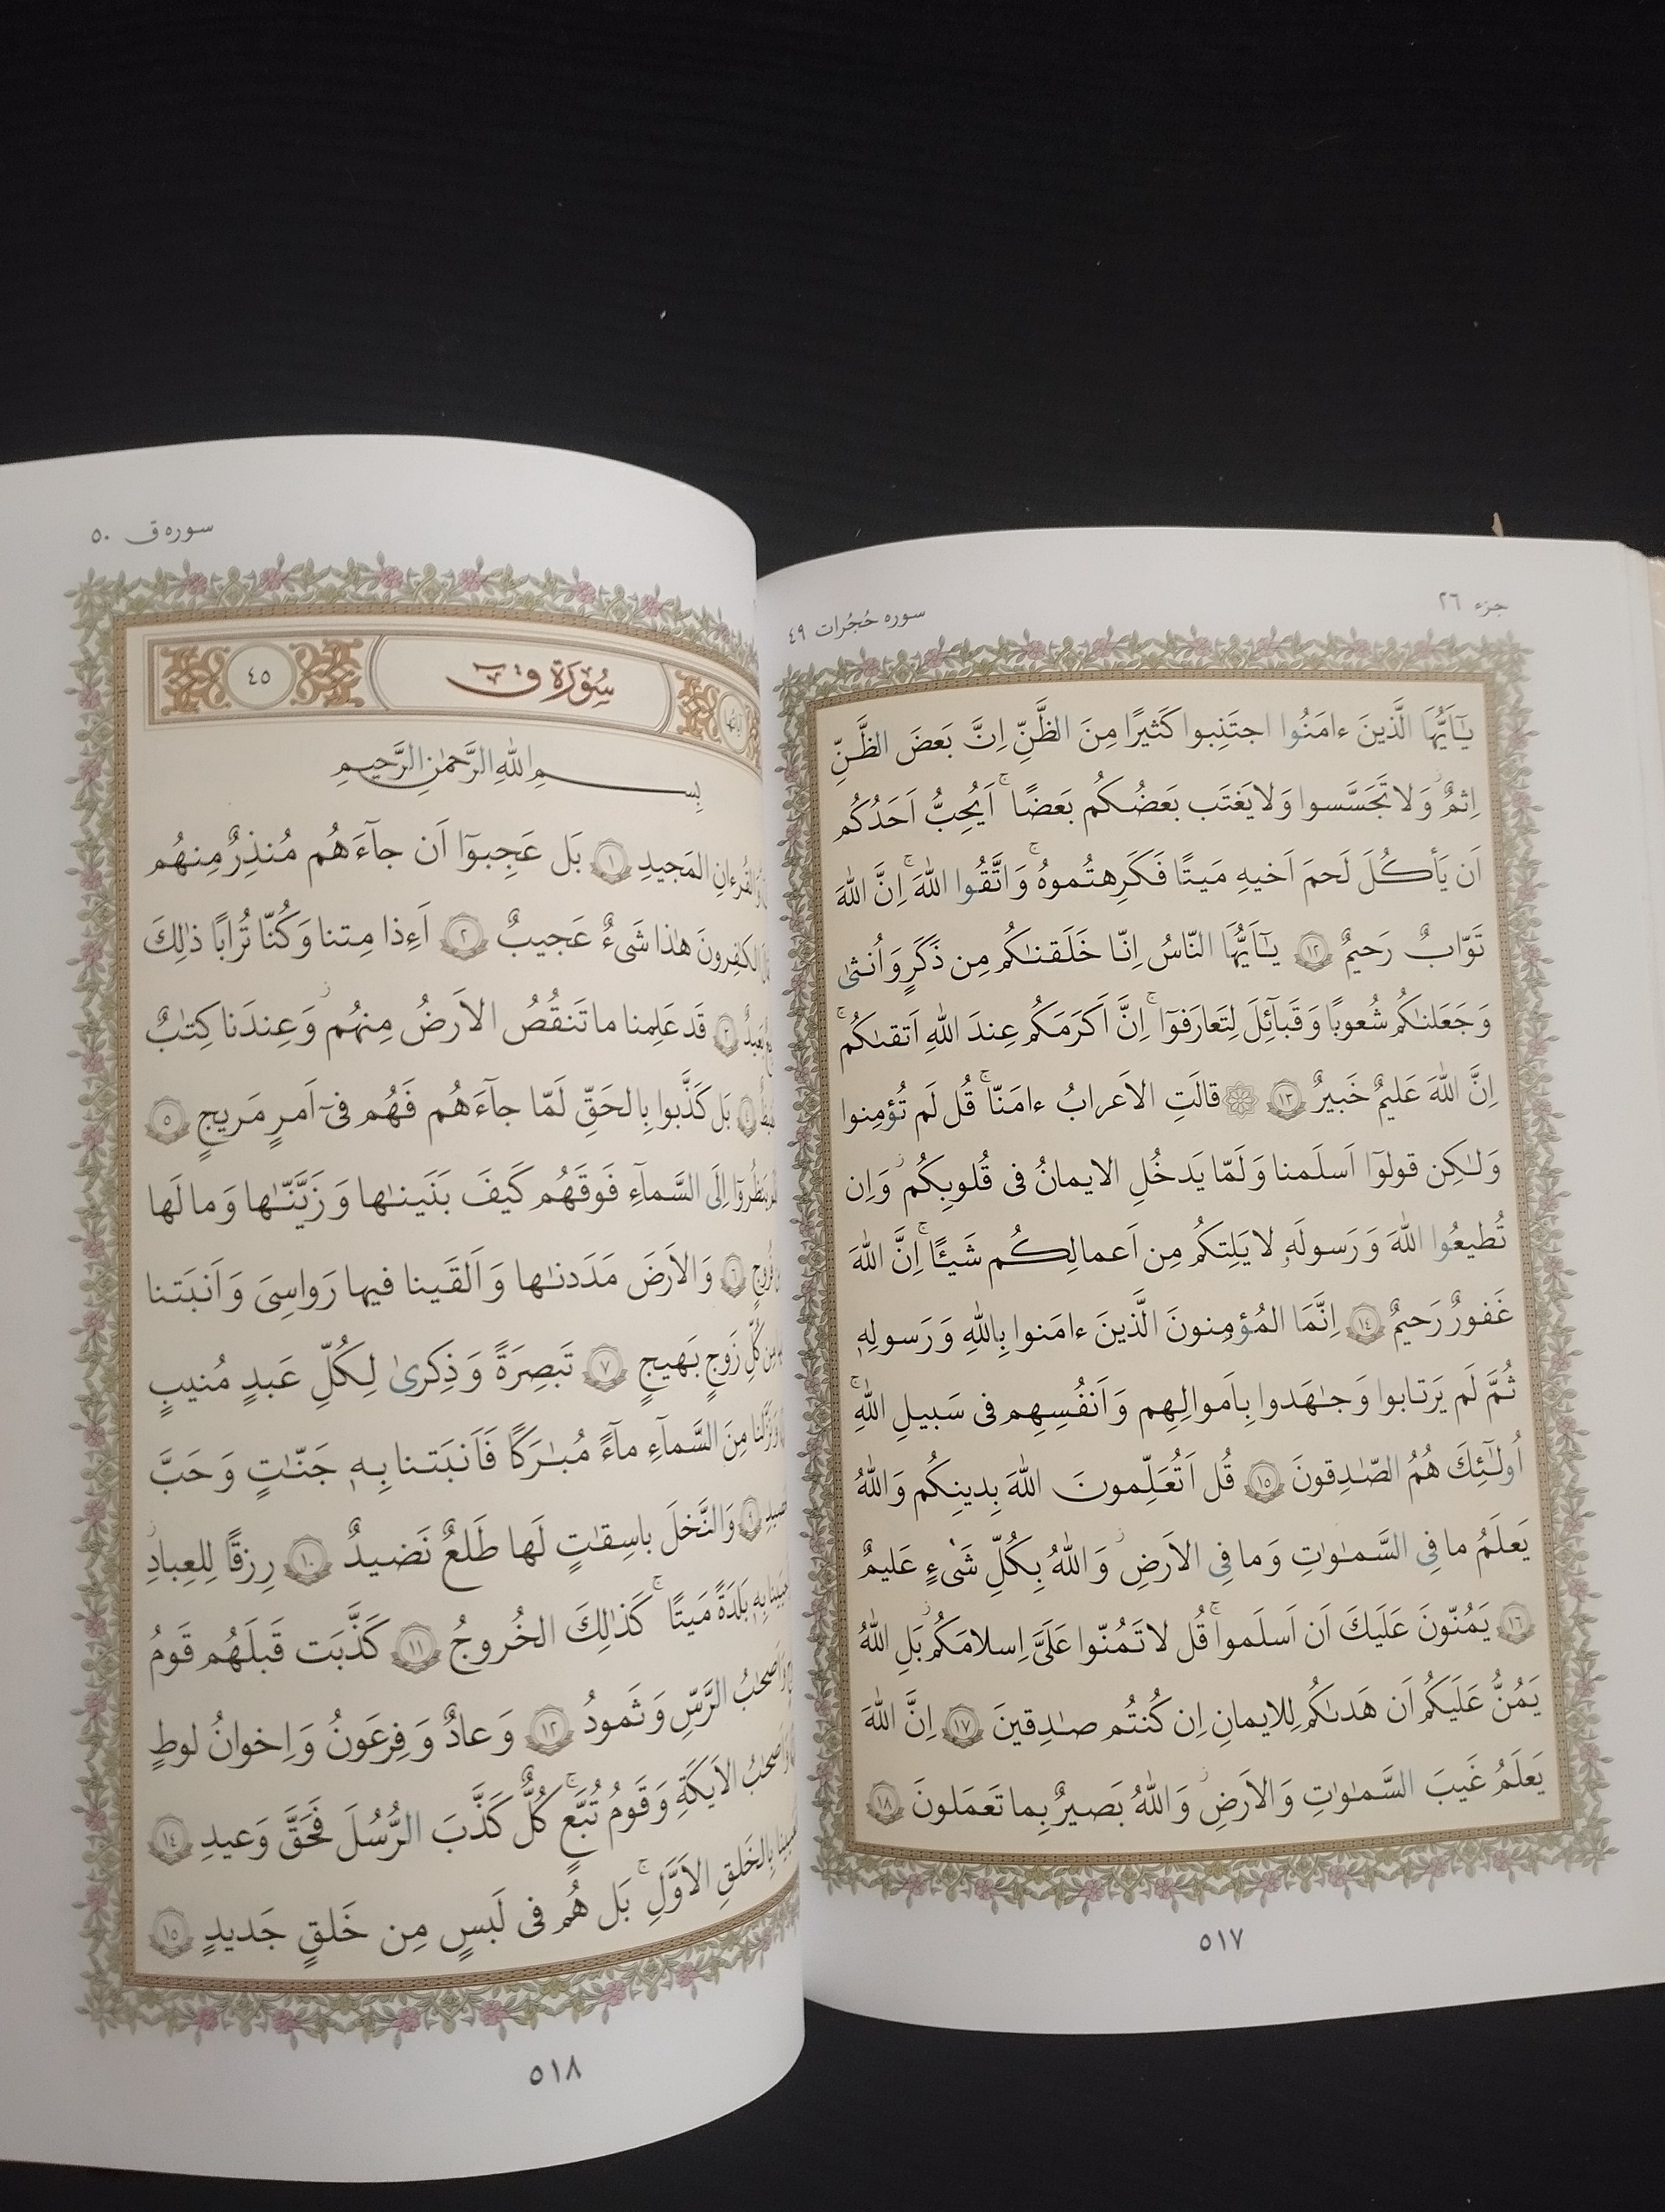 جزء ٢٦
سوره حُجُرات ٤٩
يٰٓاَيُّهَا الَّذينَ ءامَنُوا اجتَنِبوا كَثيرًا مِنَ الظَّنِّ اِنَّ بَعضَ الظَّنِّ
اِثمٌ وَلا تَجَسَّسوا وَلا يَغتَب بَعضُكُم بَعضًا ۚ اَيُحِبُّ اَحَدُكُم
اَن يَأكُلَ لَحمَ اَخيهِ مَيتًا فَكَرِهتُموهُ ۚ وَاتَّقُوا اللّٰهَ ۚ اِنَّ اللّٰهَ
تَوّابٌ رَحيمٌ ١٢ يٰٓاَيُّهَا النّاسُ اِنّا خَلَقنٰكُم مِن ذَكَرٍ وَاُنثىٰ
وَجَعَلنٰكُم شُعوبًا وَقَبآئِلَ لِتَعارَفوٓا ۚ اِنَّ اَكرَمَكُم عِندَ اللّٰهِ اَتقىٰكُم ۚ
اِنَّ اللّٰهَ عَليمٌ خَبيرٌ ١٣ ۞ قالَتِ الاَعرابُ ءامَنّا ۚ قُل لَم تُؤمِنوا
وَلٰكِن قولوٓا اَسلَمنا وَلَمّا يَدخُلِ الايمانُ فى قُلوبِكُم ۖ وَاِن
تُطيعُوا اللّٰهَ وَرَسولَهٗ لا يَلِتكُم مِن اَعمالِكُم شَيـًٔا ۚ اِنَّ اللّٰهَ
غَفورٌ رَحيمٌ ١٤ اِنَّمَا المُؤمِنونَ الَّذينَ ءامَنوا بِاللّٰهِ وَرَسولِهٖ
ثُمَّ لَم يَرتابوا وَجٰهَدوا بِاَموالِهِم وَاَنفُسِهِم فى سَبيلِ اللّٰهِ ۚ
اُولٰٓئِكَ هُمُ الصّٰدِقونَ ١٥ قُل اَتُعَلِّمونَ اللّٰهَ بِدينِكُم وَاللّٰهُ
يَعلَمُ ما فِى السَّمٰوٰتِ وَما فِى الاَرضِ ۚ وَاللّٰهُ بِكُلِّ شَىءٍ عَليمٌ
١٦ يَمُنّونَ عَلَيكَ اَن اَسلَموا ۖ قُل لا تَمُنّوا عَلَىَّ اِسلامَكُم ۖ بَلِ اللّٰهُ
يَمُنُّ عَلَيكُم اَن هَدىٰكُم لِلايمانِ اِن كُنتُم صٰدِقينَ ١٧ اِنَّ اللّٰهَ
يَعلَمُ غَيبَ السَّمٰوٰتِ وَالاَرضِ ۚ وَاللّٰهُ بَصيرٌ بِما تَعمَلونَ ١٨
٥١٧
سوره ق ٥٠
سُورَةُ ق ٤٥
بِسمِ اللّٰهِ الرَّحمٰنِ الرَّحيمِ
المَجيدِ ١ بَل عَجِبوٓا اَن جآءَهُم مُنذِرٌ مِنهُم
الكٰفِرونَ هٰذا شَىءٌ عَجيبٌ ٢ اَءِذا مِتنا وَكُنّا تُرابًا ذٰلِكَ
بَعيدٌ ٣ قَد عَلِمنا ما تَنقُصُ الاَرضُ مِنهُم ۖ وَعِندَنا كِتٰبٌ
٤ بَل كَذَّبوا بِالحَقِّ لَمّا جآءَهُم فَهُم فىٓ اَمرٍ مَريجٍ ٥
اِلَى السَّمآءِ فَوقَهُم كَيفَ بَنَينٰها وَزَيَّنّٰها وَما لَها
فُروجٍ ٦ وَالاَرضَ مَدَدنٰها وَاَلقَينا فيها رَواسِىَ وَاَنبَتنا
مِن كُلِّ زَوجٍ بَهيجٍ ٧ تَبصِرَةً وَذِكرىٰ لِكُلِّ عَبدٍ مُنيبٍ
وَنَزَّلنا مِنَ السَّمآءِ مآءً مُبٰرَكًا فَاَنبَتنا بِهٖ جَنّٰتٍ وَحَبَّ
٩ وَالنَّخلَ باسِقٰتٍ لَها طَلعٌ نَضيدٌ ١٠ رِزقًا لِلعِبادِ ۖ
بِهٖ بَلدَةً مَيتًا ۚ كَذٰلِكَ الخُروجُ ١١ كَذَّبَت قَبلَهُم قَومُ
وَاَصحٰبُ الرَّسِّ وَثَمودُ ١٢ وَعادٌ وَفِرعَونُ وَاِخوانُ لوطٍ
وَاَصحٰبُ الاَيكَةِ وَقَومُ تُبَّعٍ ۚ كُلٌّ كَذَّبَ الرُّسُلَ فَحَقَّ وَعيدِ ١٤
بِالخَلقِ الاَوَّلِ ۚ بَل هُم فى لَبسٍ مِن خَلقٍ جَديدٍ ١٥
٥١٨